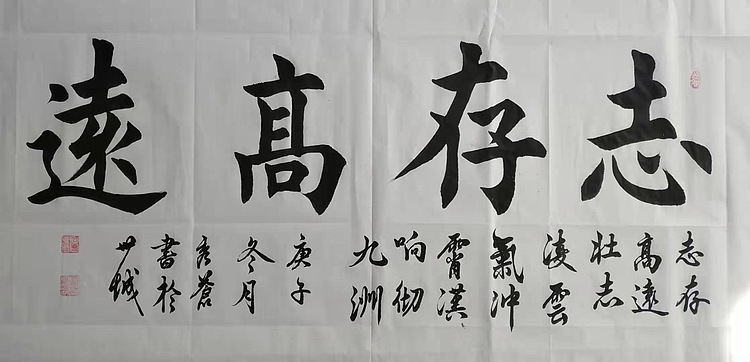 志存高遠
志存
高遠
壯志
凌雲
氣沖
霄漢
响彻
九洲
庚子
冬月
書於